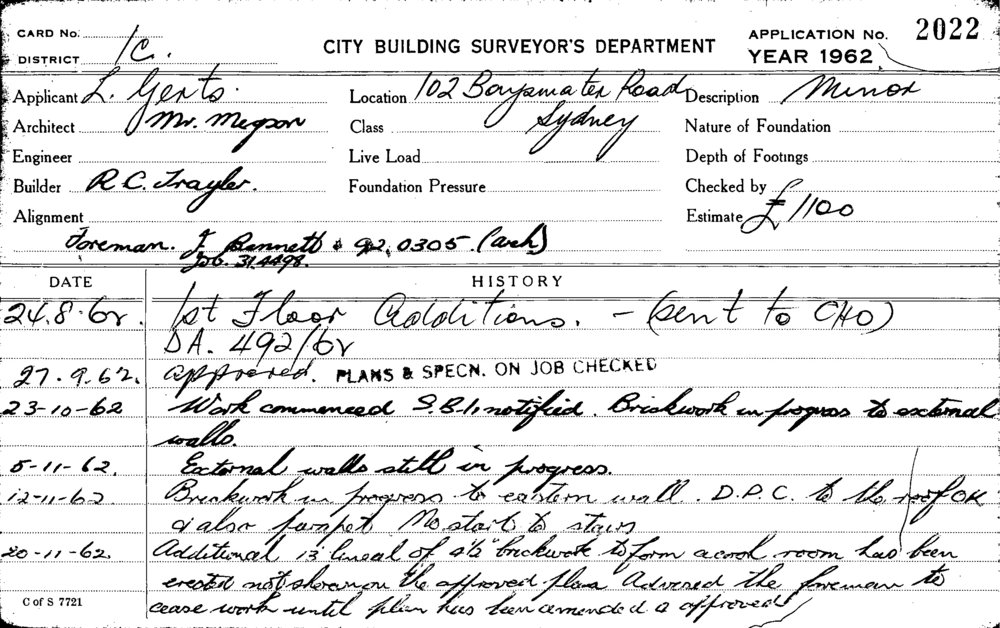 CARD No.
DISTRICT 1C.
CITY BUILDING SURVEYOR'S DEPARTMENT
APPLICATION No. 2022
YEAR 1962
Applicant L. Gerts.
Location 102 Bayswater Road
Description Minor
Architect Mr. Megson
Class Sydney
Nature of Foundation
Engineer
Live Load
Depth of Footings
Builder R C. Trayler.
Foundation Pressure
Checked by
Alignment
Estimate £1100
Foreman. J. Bennett 92.0305 (arch)
Job. 31.4498.
DATE HISTORY
24.8.62. 1st Floor Additions. - (sent to CHO)
DA. 492/62
27.9.62. approved. PLANS & SPECN. ON JOB CHECKED
23-10-62 Work commenced S.B.I. notified. Brickwork in progress to external
walls.
5-11-62. External walls still in progress.
12-11-62 Brickwork in progress to eastern wall. D.P.C. to the roof OK
& also parapet No start to stairs
20-11-62. Additional 13' lineal of 4½" brickwork to form a cool room has been
erected not shown on the approved plans Advised the foreman to
cease work until plan has been amended & approved
C of S 7721